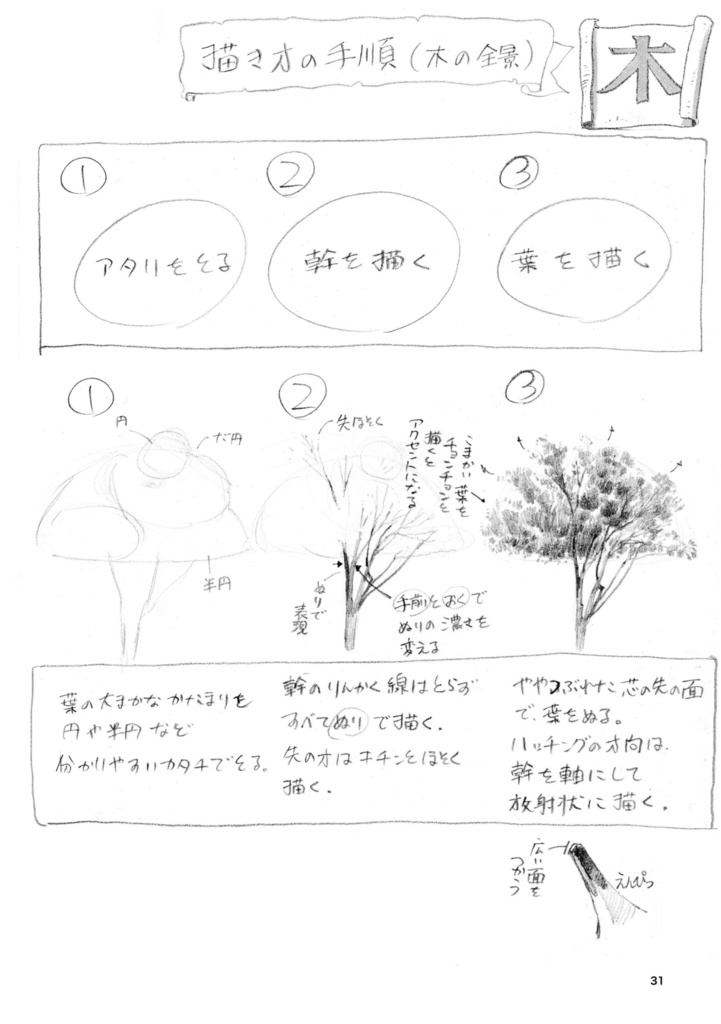 描き方の手順(木の全景)
木
①
②
③
アタリをとる
幹を描く
葉を描く
①
②
③
円
だ円
半円
先はほそく
ぬりで
表現
手前とおくで
ぬりの濃さを
変える
こまかい葉を
チョンチョンと
描くと
アクセントになる
葉の大まかなかたまりを
円や半円など
分かりやすいカタチでとる。
幹のりんかく線はとらず
すべてぬりで描く.
先の方はキチンとほそく
描く.
ややつぶれた芯の先の面
で、葉をぬる。
ハッチングの方向は、
幹を軸にして
放射状に描く.
広い面を
つかう
えんぴつ
31